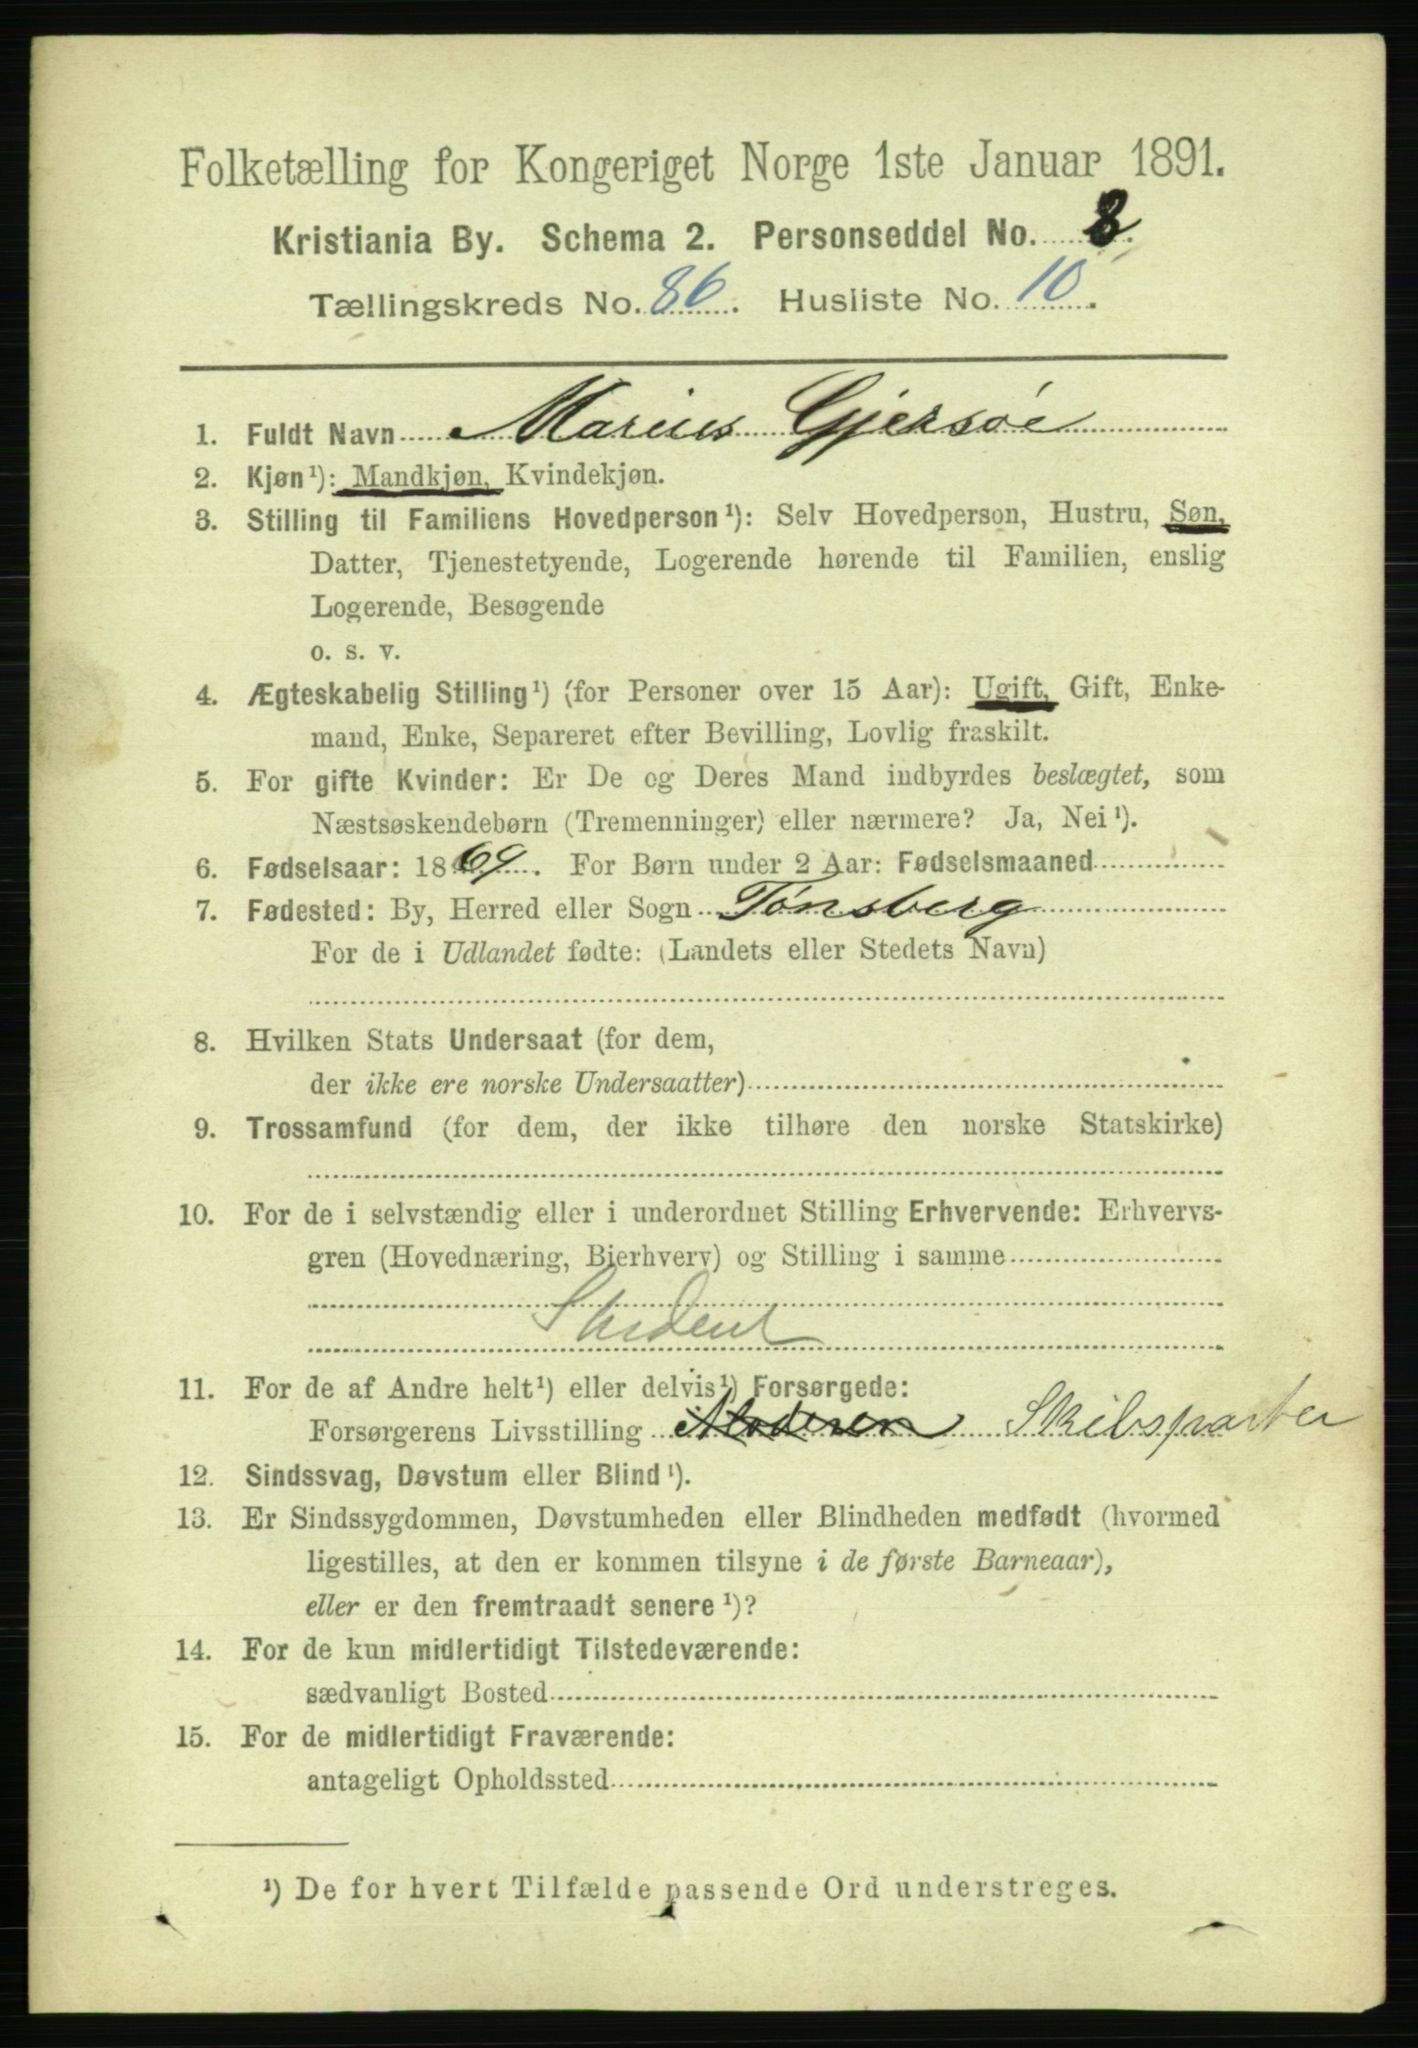 Folketælling for Kongeriget Norge 1ste Januar 1891.
Kristiania By. Schema 2. Personseddel No. 3.
Tællingskreds No. 86. Husliste No. 10.
1. Fuldt Navn Marius Gjersøe
2. Kjøn¹): Mandkjøn, Kvindekjøn.
3. Stilling til Familiens Hovedperson¹): Selv Hovedperson, Hustru, Søn,
Datter, Tjenestetyende, Logerende hørende til Familien, enslig
Logerende, Besøgende
o. s. v.
4. Ægteskabelig Stilling¹) (for Personer over 15 Aar): Ugift, Gift, Enke-
mand, Enke, Separeret efter Bevilling, Lovlig fraskilt.
5. For gifte Kvinder: Er De og Deres Mand indbyrdes beslægtet, som
Næstsøskendebørn (Tremenninger) eller nærmere? Ja, Nei¹).
6. Fødselsaar: 1869. For Børn under 2 Aar: Fødselsmaaned
7. Fødested: By, Herred eller Sogn Tønsberg
For de i Udlandet fødte: (Landets eller Stedets Navn)
8. Hvilken Stats Undersaat (for dem,
der ikke ere norske Undersaatter)
9. Trossamfund (for dem, der ikke tilhøre den norske Statskirke)
10. For de i selvstændig eller i underordnet Stilling Erhvervende: Erhvervs-
gren (Hovednæring, Bierhverv) og Stilling i samme
Student
11. For de af Andre helt¹) eller delvis¹) Forsørgede:
Forsørgerens Livsstilling Moderen Skibsparter
12. Sindssvag, Døvstum eller Blind¹).
13. Er Sindssygdommen, Døvstumheden eller Blindheden medfødt (hvormed
ligestilles, at den er kommen tilsyne i de første Barneaar),
eller er den fremtraadt senere¹)?
14. For de kun midlertidigt Tilstedeværende:
sædvanligt Bosted
15. For de midlertidigt Fraværende:
antageligt Opholdssted
¹) De for hvert Tilfælde passende Ord understreges.